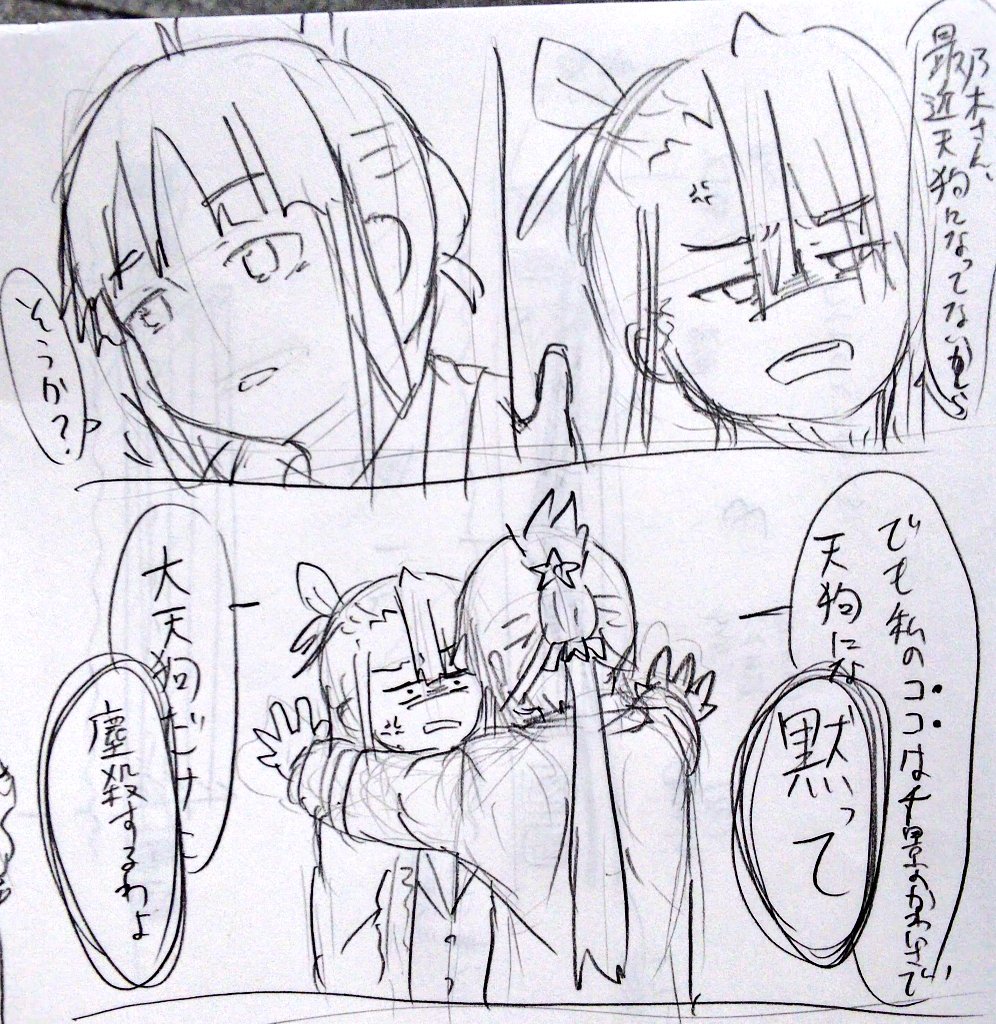 乃木さん、
最近天狗になってないかしら
そうか?
でも私のココは千景のかわいさで
天狗にな
黙って
大天狗だけど
塵殺するわよ